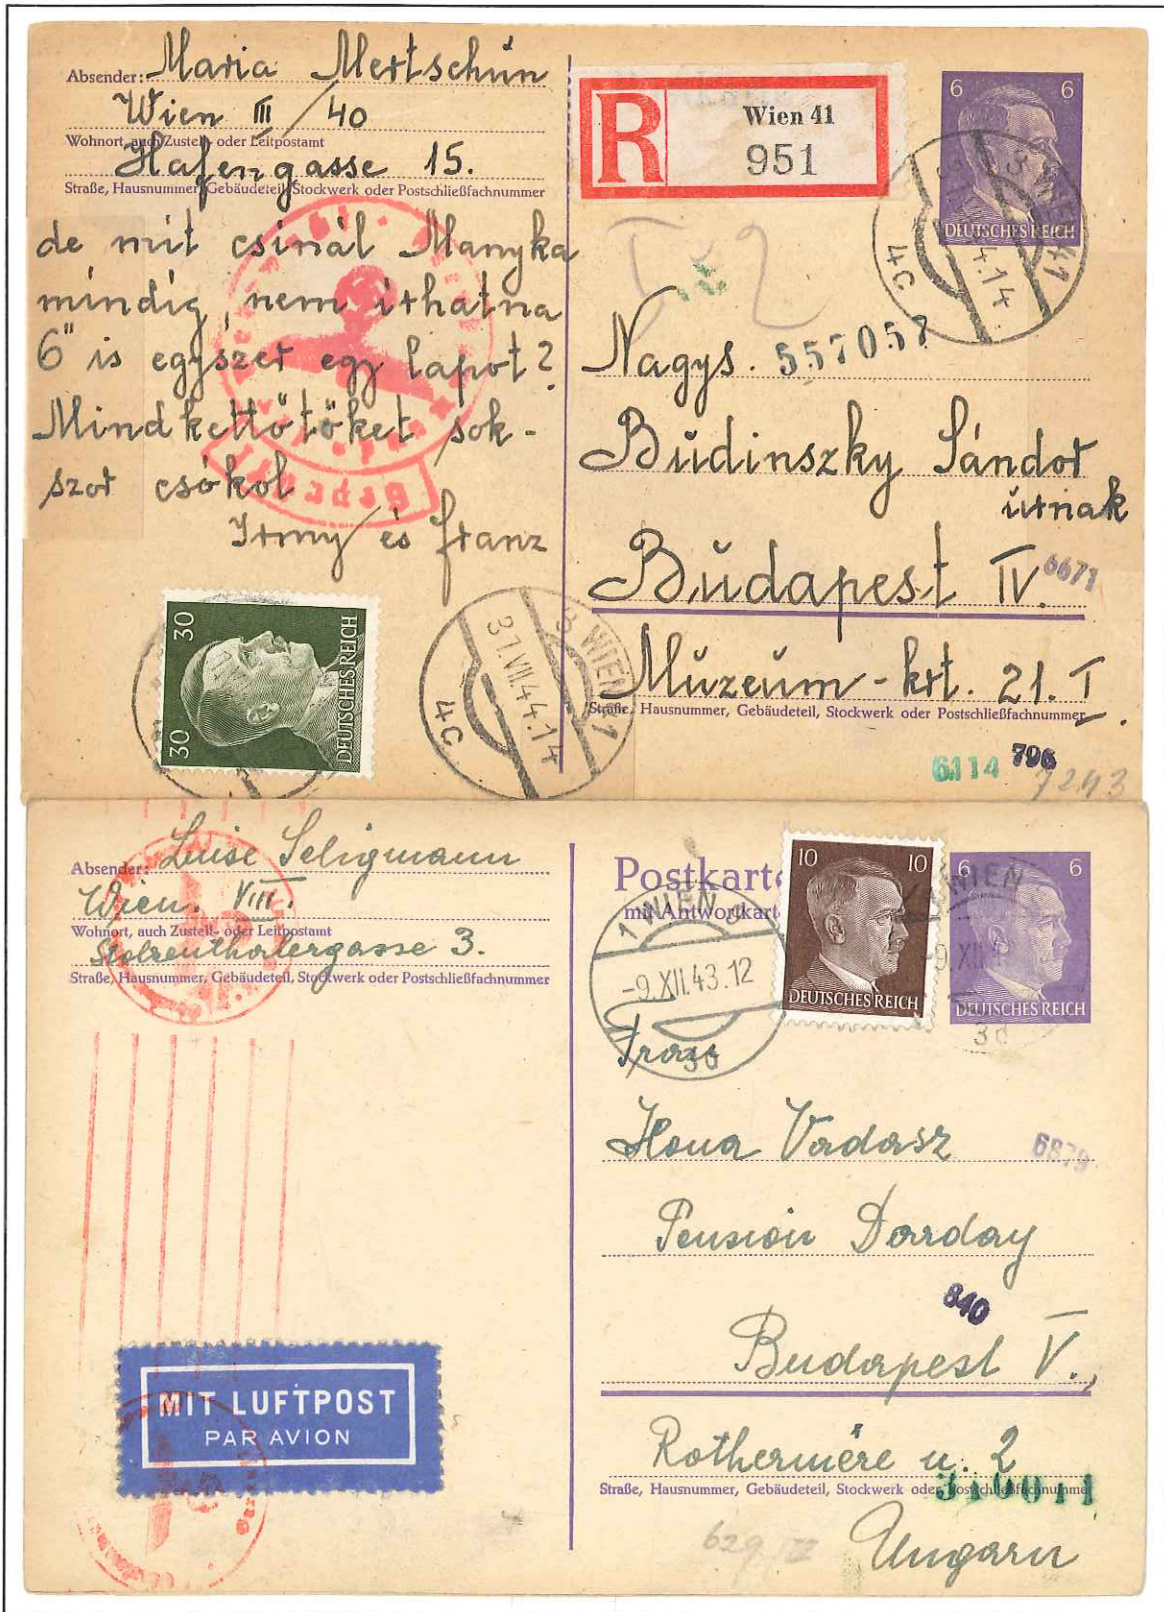 Absender: Maria Mertschün
Wien III/40
Wohnort, auch Zustell- oder Leitpostamt
Hafengasse 15.
Straße, Hausnummer, Gebäudeteil, Stockwerk oder Postschließfachnummer
de mit csinál Manyka
mindig, nem irhatna
6" is egyszer egy lapot?
Mindkettötöket sok-
szor csókol
Irmy és Franz
Geprüft
R
Wien 41
951
6 6
DEUTSCHES REICH
3 WIEN 41
4c
Nagys. 557057
Budinszky Sándor
úrnak
Budapest IV.
6671
Múzeum-krt. 21. I.
Straße, Hausnummer, Gebäudeteil, Stockwerk oder Postschließfachnummer
6114 796
7243
30 30
DEUTSCHES REICH
3 WIEN 41
31.VII.44.14
4c
Absender: Luise Seligmann
Wien. VIII.
Wohnort, auch Zustell- oder Leitpostamt
Stolzenthalergasse 3.
Straße, Hausnummer, Gebäudeteil, Stockwerk oder Postschließfachnummer
MIT LUFTPOST
PAR AVION
Postkarte
mit Antwortkarte
10 10
DEUTSCHES REICH
6 6
DEUTSCHES REICH
1 WIEN
-9.XII.43.12
3d
WIEN
-9.XII.
3d
Frau
Ilona Vadasz
6879
Pension Darday
840
Budapest V.,
Rothermére u. 2
Straße, Hausnummer, Gebäudeteil, Stockwerk oder Postschließfachnummer
Ungarn